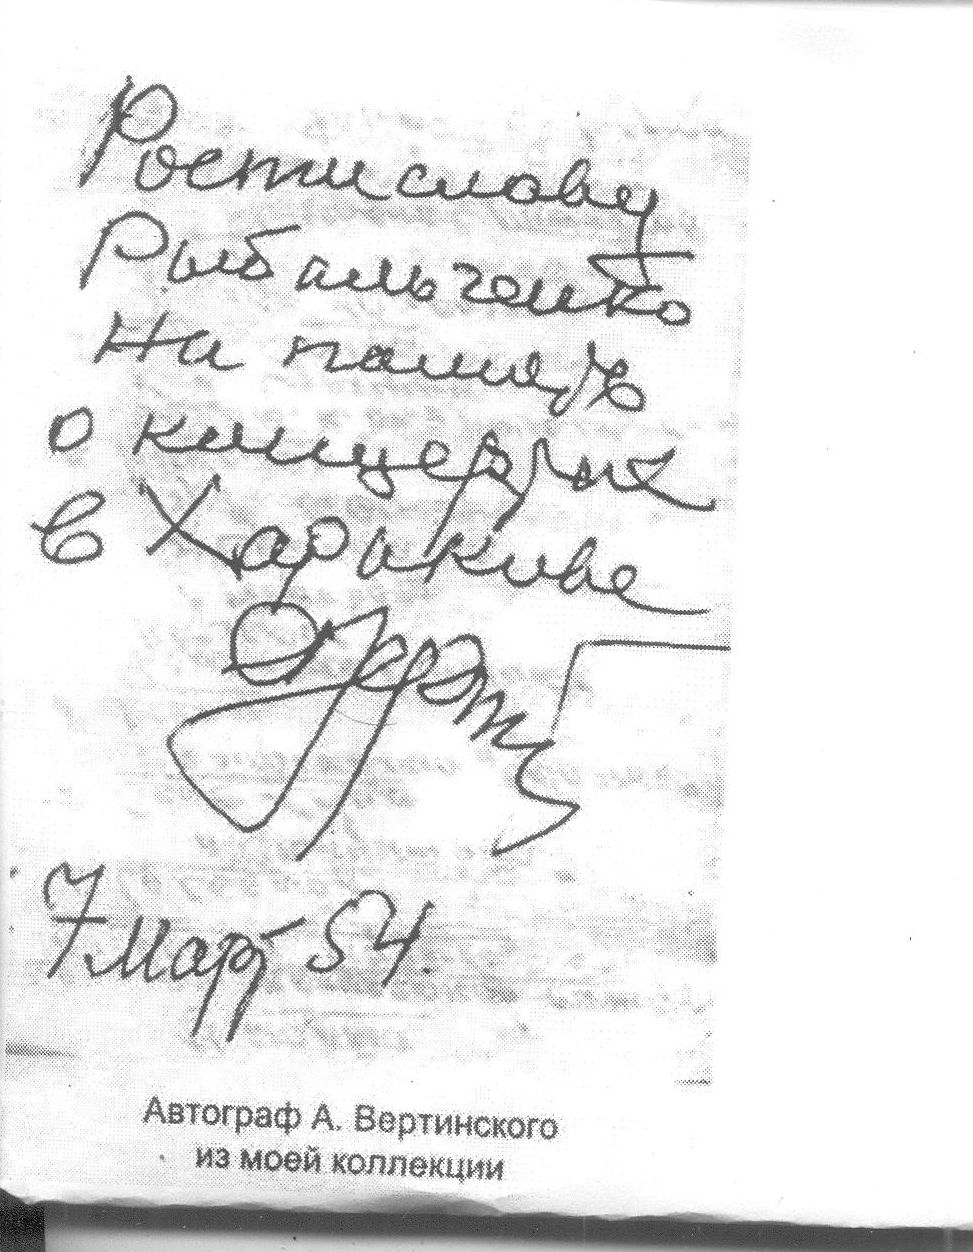 Ростиславу
Рыбальченко
на память
о концертах
в Харькове
7 Март 54.
Автограф А. Вертинского
из моей коллекции